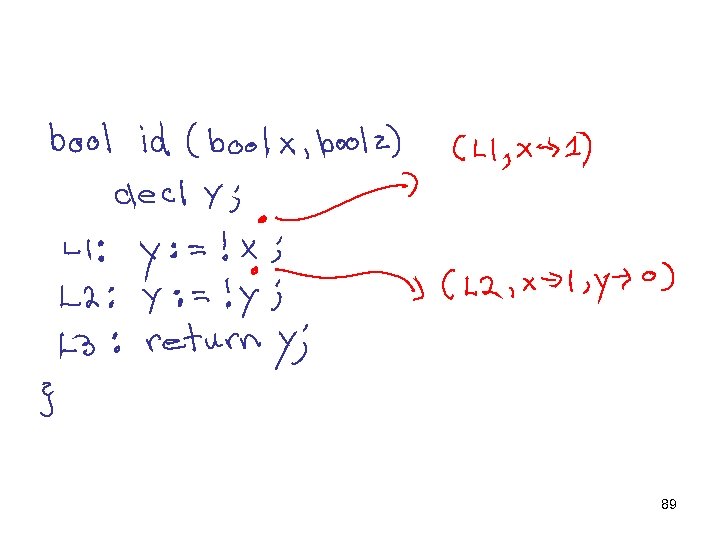 bool id (bool x, bool z) (L1, x→1)
decl y;
L1: y := !x ;
L2: y := !y ; (L2, x→1, y→0)
L3: return y;
}
89